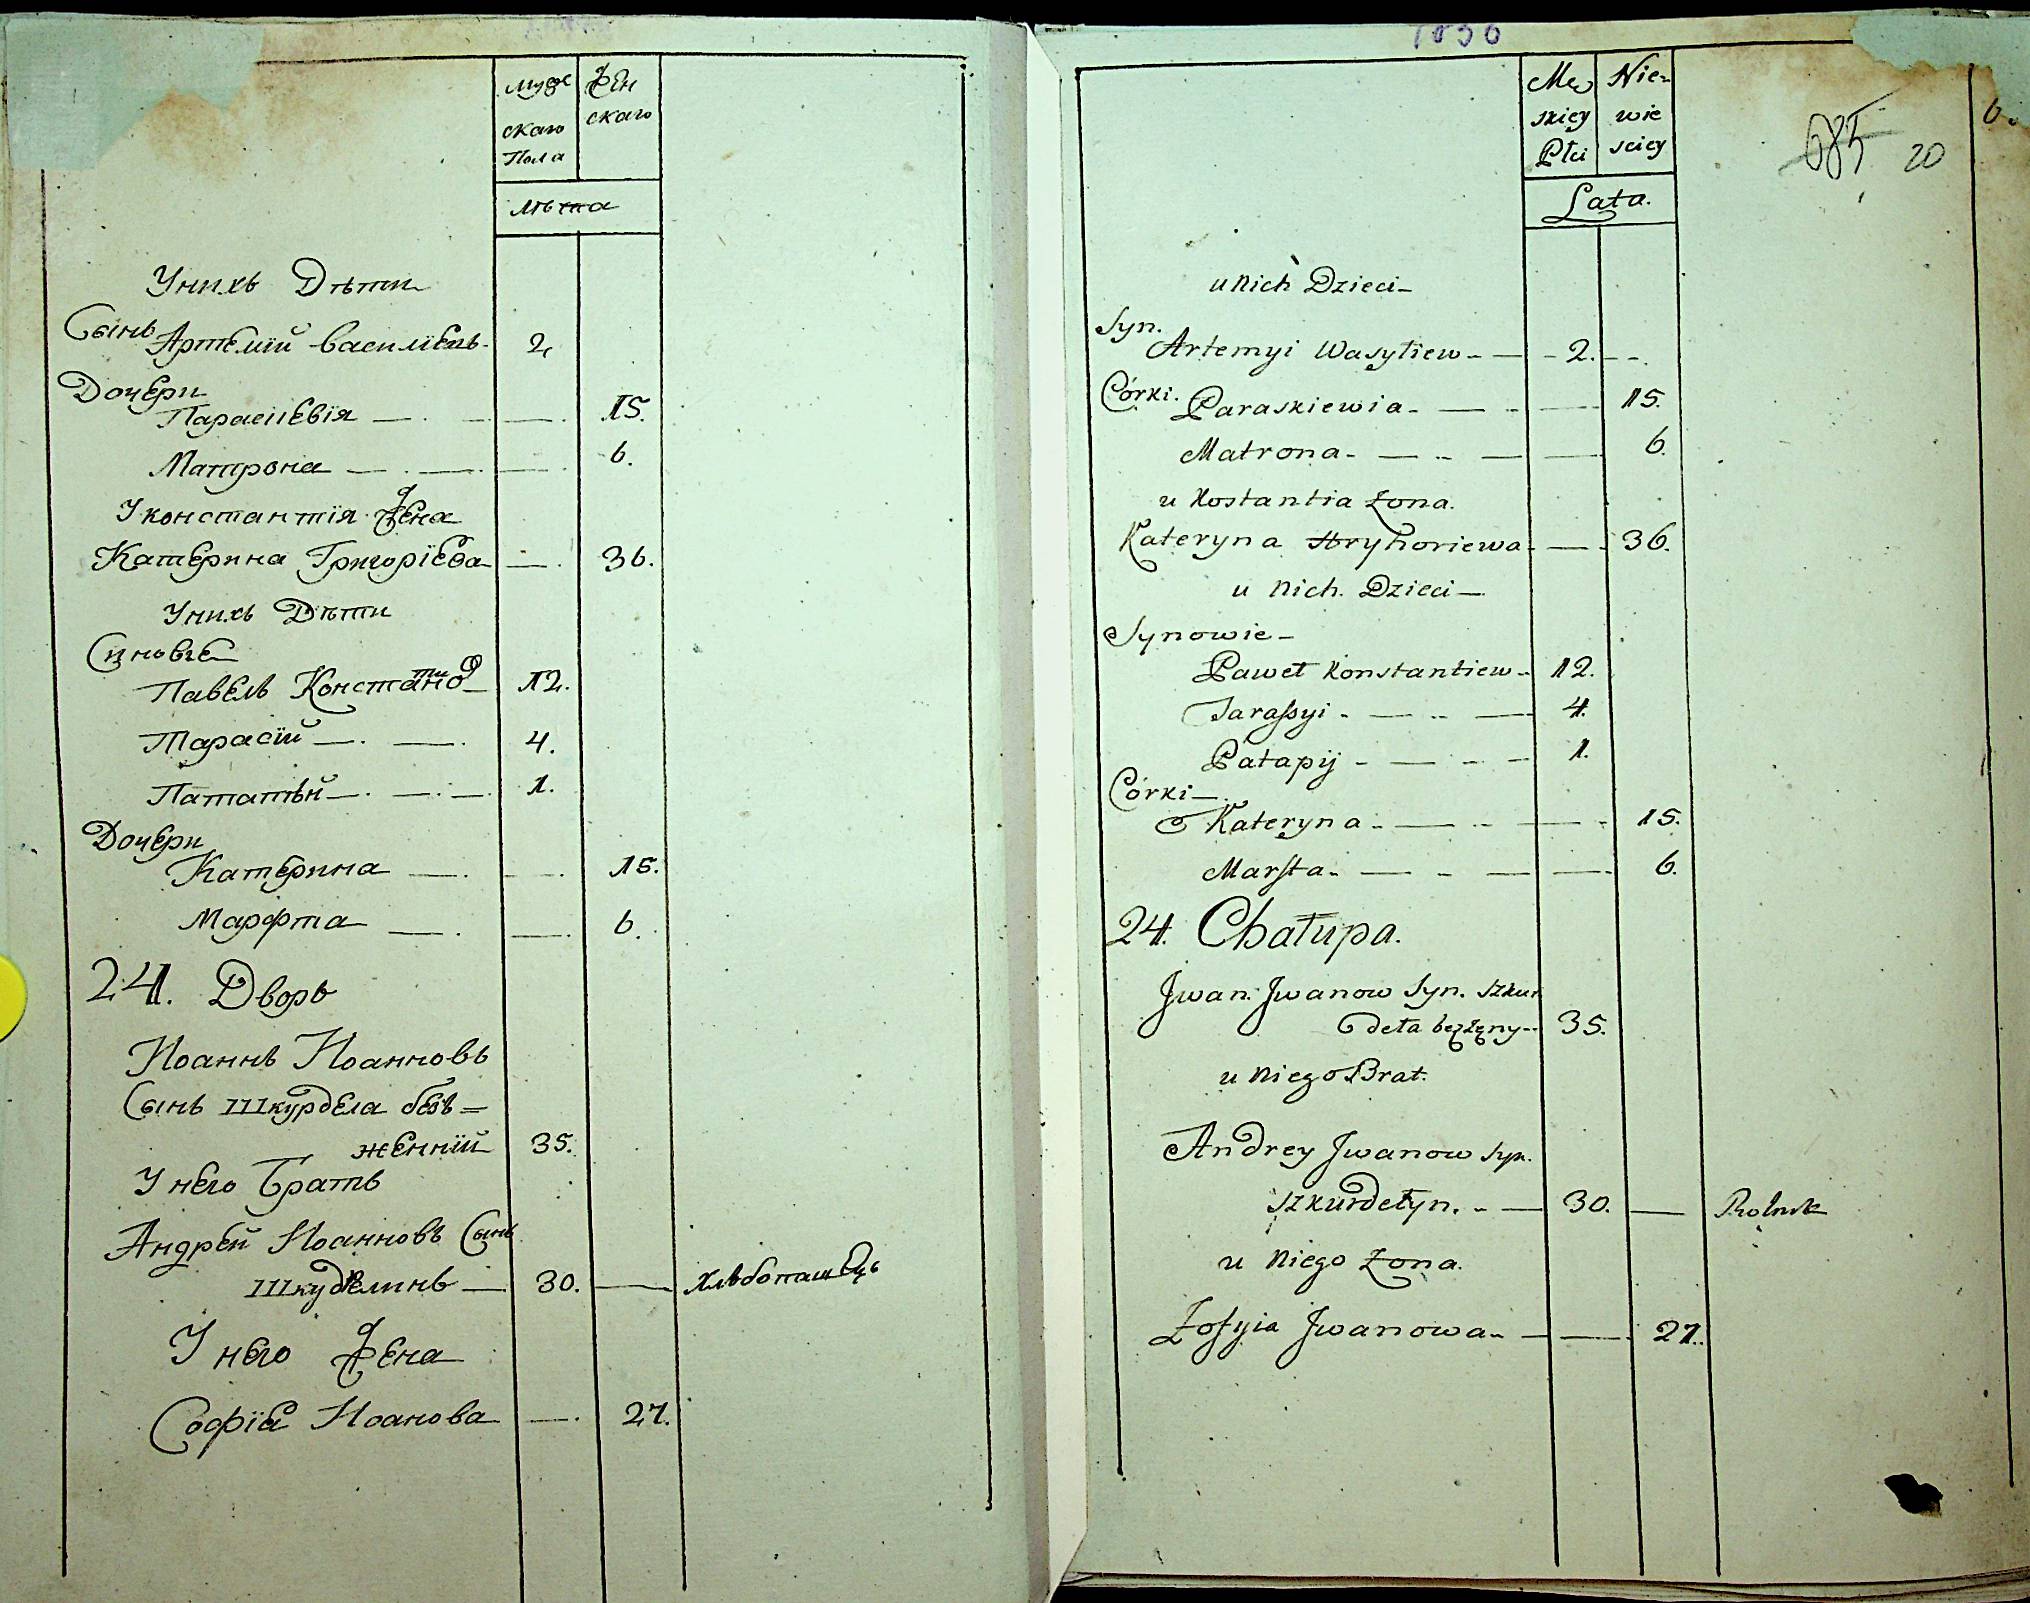 муже
ского
Пола
Жен
скаго
лѣта
Унихъ Дѣти
Сынъ
Артемій Василіевъ 2.
Дочери
Параскевія 15.
Матрона 6.
У константія Жена
Катерина Григоріева 36.
Унихъ Дѣти
Синовіе
Павелъ Константиновъ 12.
Тарасій 4.
Дочери
Катерина 15.
Марфта 6.
24. Дворъ
Иоаннъ Иоанновъ
Сынъ Шкурдела без=
женній 35.
У него Братъ
Андрей Иоанновъ Сынъ
Шкурделинъ 30. Хлѣбопашецъ
У него Жена
Софія Иоанова 27.
1836
Mę
skiey
Płci
Nie-
wie
sciey
Lata.
685 20
6.
u nich Dzieci
Syn.
Artemyi Wasyliew 2.
Córki. Paraskiewia 15.
Matrona 6.
u Kostantia Żona.
Kateryna Hryhoriewa 36.
u nich. Dzieci
Synowie
Paweł Konstantiew 12.
Tarassyi 4.
Patapij 1.
Córki
Kateryna 15.
Marfta 6.
24. Chałupa.
Jwan. Jwanow Syn. Szkur
deła bezżeny 35.
u niego Brat.
Andrey Jwanow Syn.
Szkurdełyn. 30. Rolnik
u niego Żona.
Zofyia Jwanowa 27.